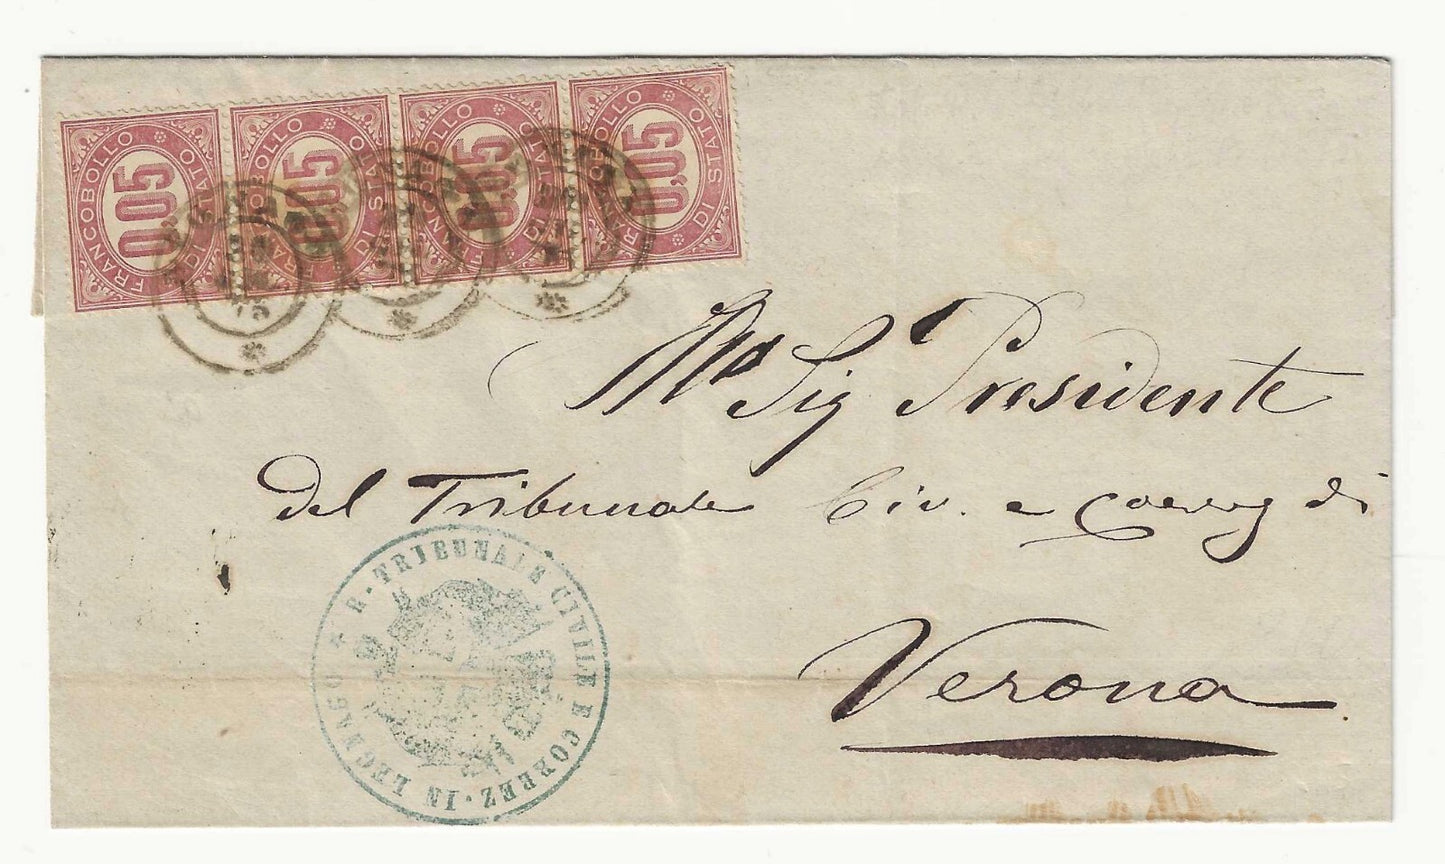 FRANCOBOLLO DI STATO 0.05
FRANCOBOLLO DI STATO 0.05
FRANCOBOLLO DI STATO 0.05
FRANCOBOLLO DI STATO 0.05
75
Sig Presidente
del Tribunale Civ. e Correz di
Verona
R. TRIBUNALE CIVILE E CORREZ. IN LEGNAGO